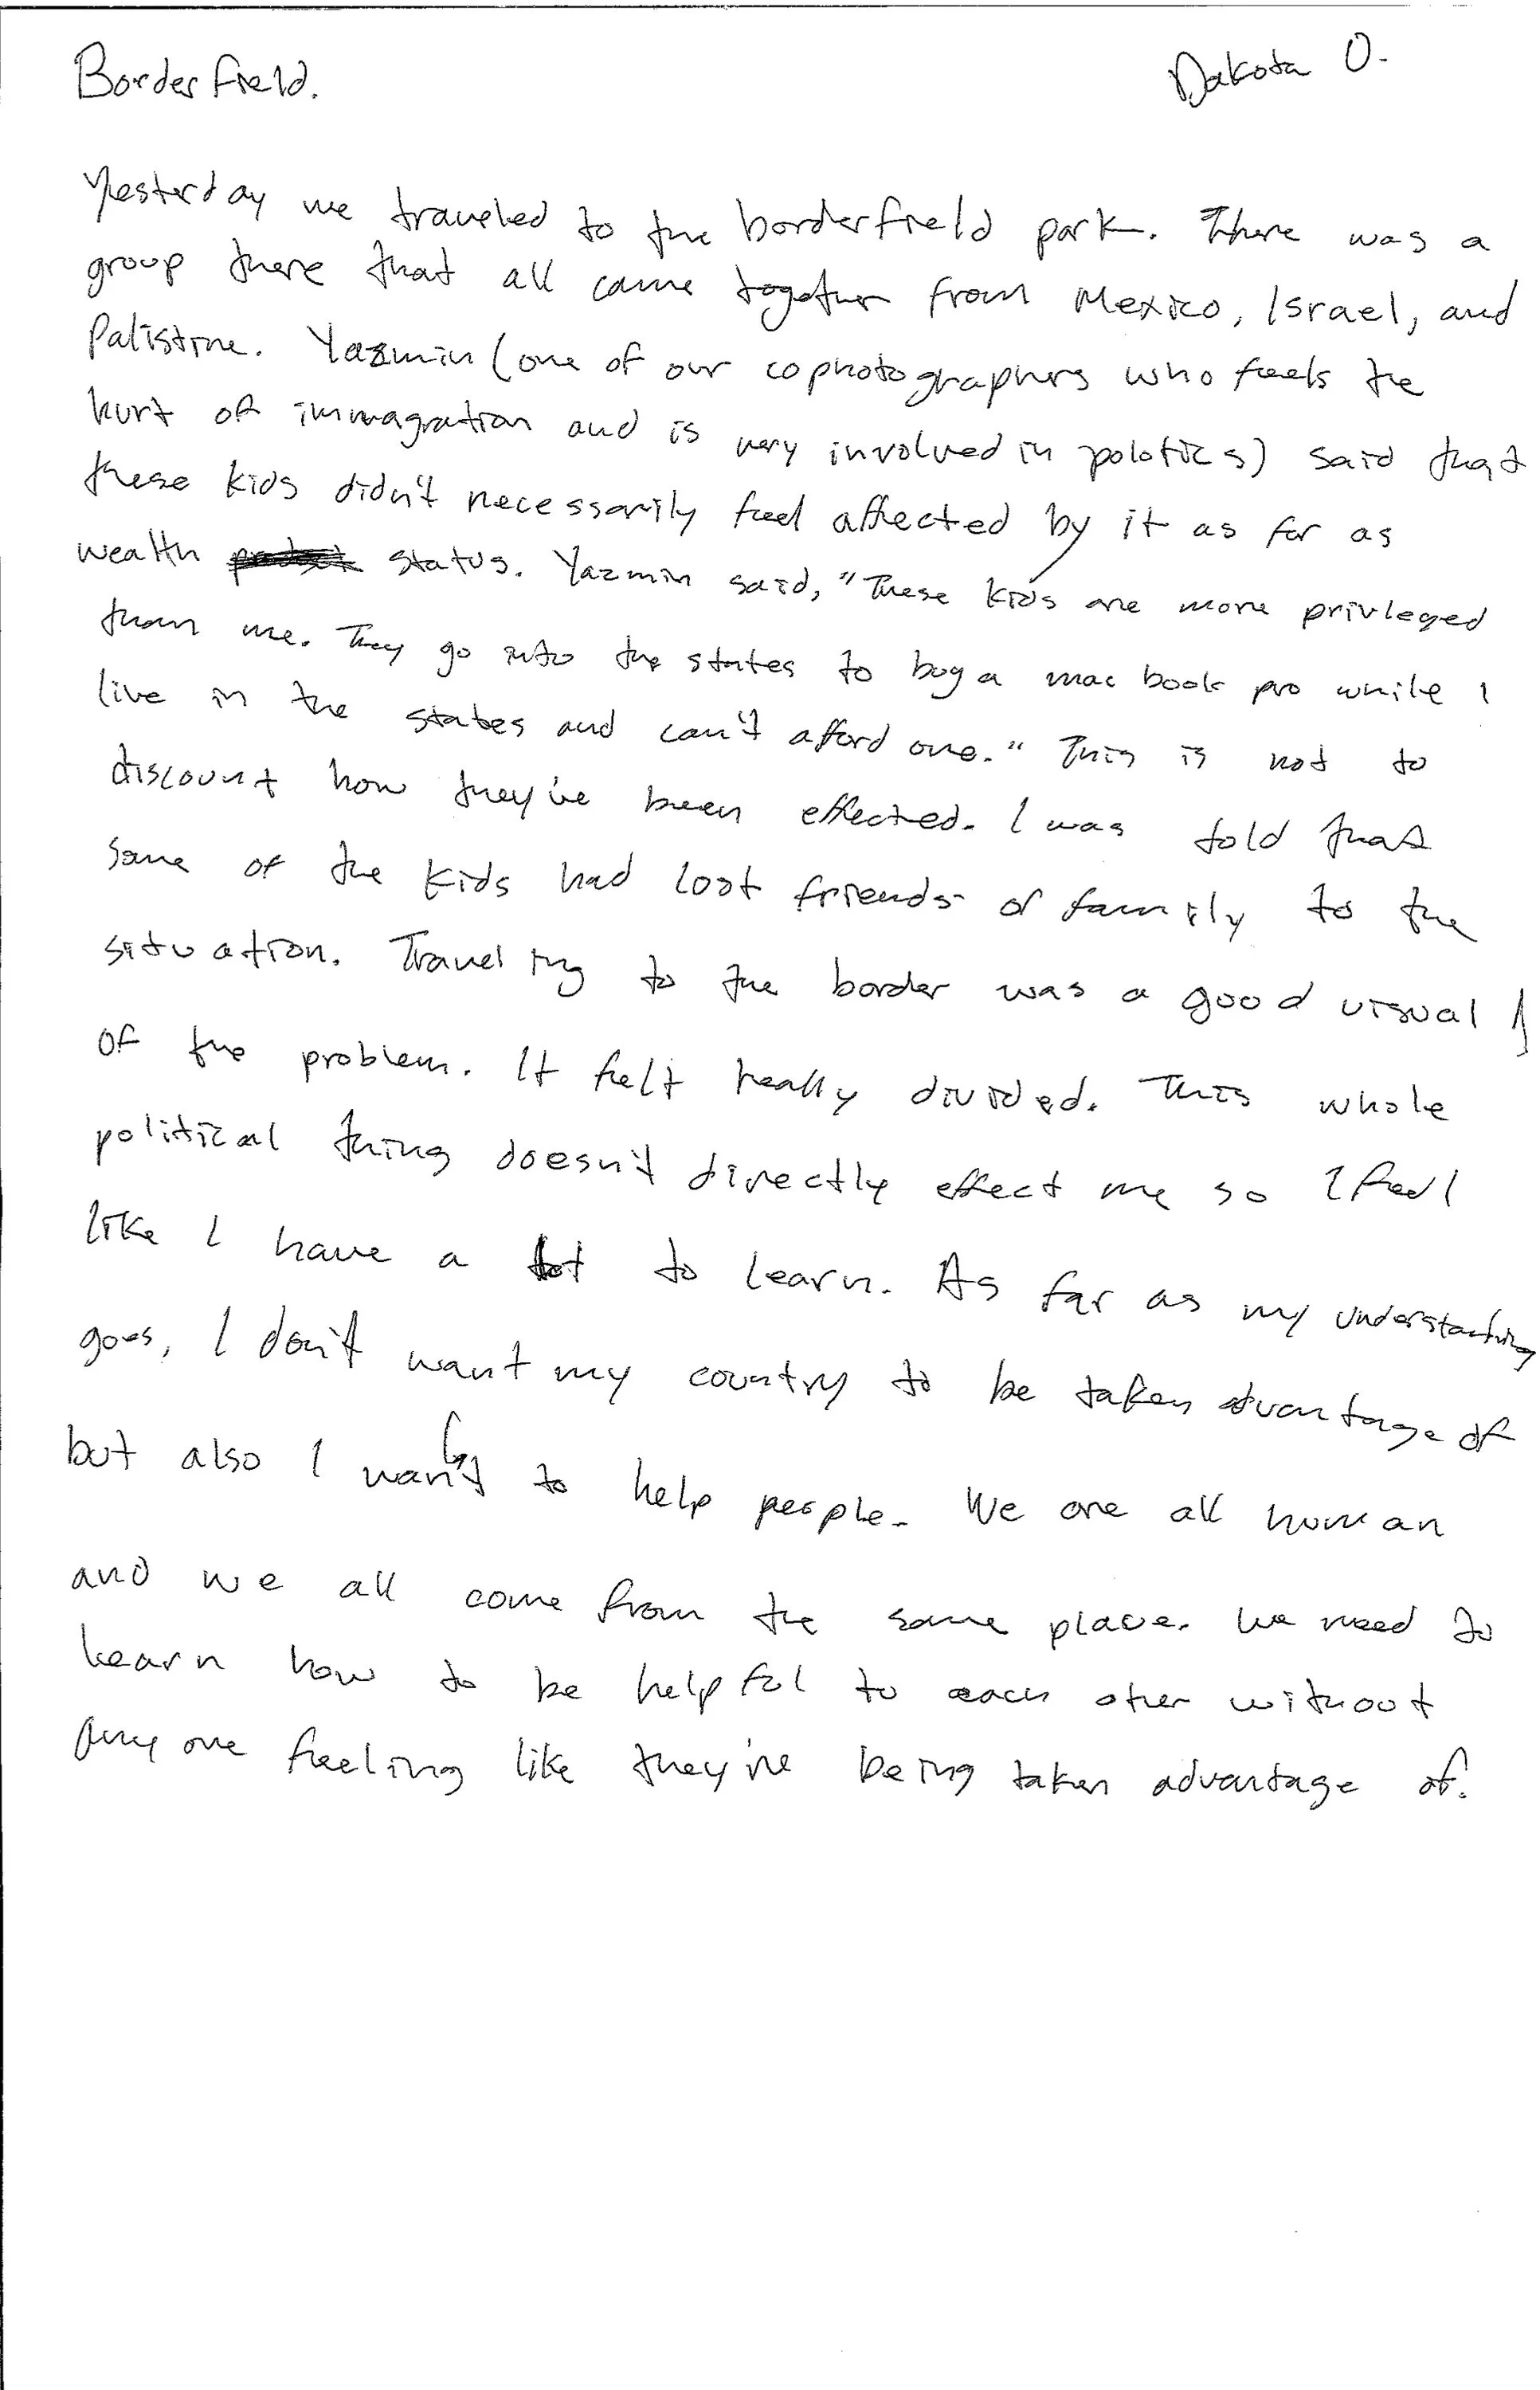 Borderfield. Dakota O.
Yesterday we traveled to the borderfield park. There was a
group there that all came together from Mexico, Israel, and
Palistine. Yazmin (one of our cophotographers who feels the
hurt of immagration and is very involved in polotics) said that
these kids didn't necessarily feel affected by it as far as
wealth status. Yazmin said, "These kids are more privleged
than me. They go into the states to buy a mac book pro while I
live in the states and can't afford one." This is not to
discount how they've been effected. I was told that
some of the kids had lost friends or family to the
situation. Traveling to the border was a good visual
of the problem. It felt really divided. This whole
political thing doesn't directly effect me so I feel
like I have a lot to learn. As far as my understanding
goes, I don't want my country to be taken advantage of
but also I want to help people. We are all human
and we all come from the same place. We need to
learn how to be helpful to each other without
anyone feeling like they're being taken advantage of.